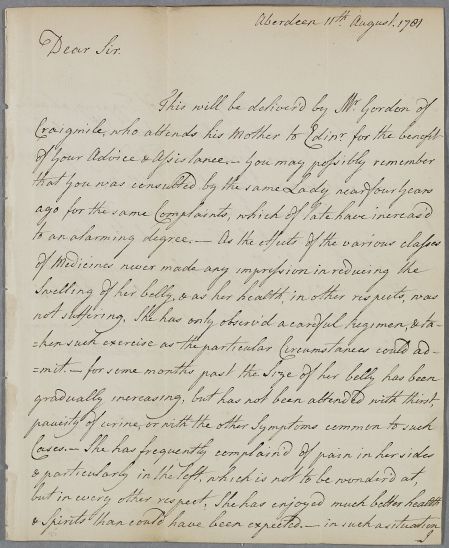 Aberdeen 11th August. 1781
Dear Sir.
This will be deliverd by Mr. Gordon of
Craigmile, who attends his Mother to Edinr for the benefit
of your Advice & Assistance.— You may possibly remember
that you was consulted by the same Lady near four years
ago for the same Complaints, which of late have increas'd
to an alarming degree.— As the effects of the various classes
of Medicines never made any impression in reducing the
Swelling of her belly, & as her health, in other respects, was
not suffering, She has only observ'd a careful Regimen, & ta-
=ken such exercise as the particular Circumstances could ad-
=mit.— for some months past the Size of her belly has been
gradually increasing, but has not been attended with thirst,
paucity of urine, or with the other Symptoms common to such
Cases.— She has frequently complain'd of pain in her sides
& particularly in the left, which is not to be wonderd at,
but in every other respect, She has enjoyed much better health
& Spirits than could have been expected.— in such a situation